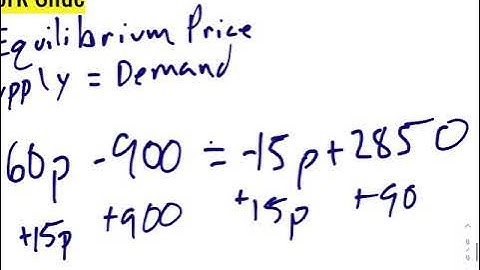 Equilibrium Price
Supply = Demand
60p - 900 = -15p + 2850
+15p +900 +15p +90